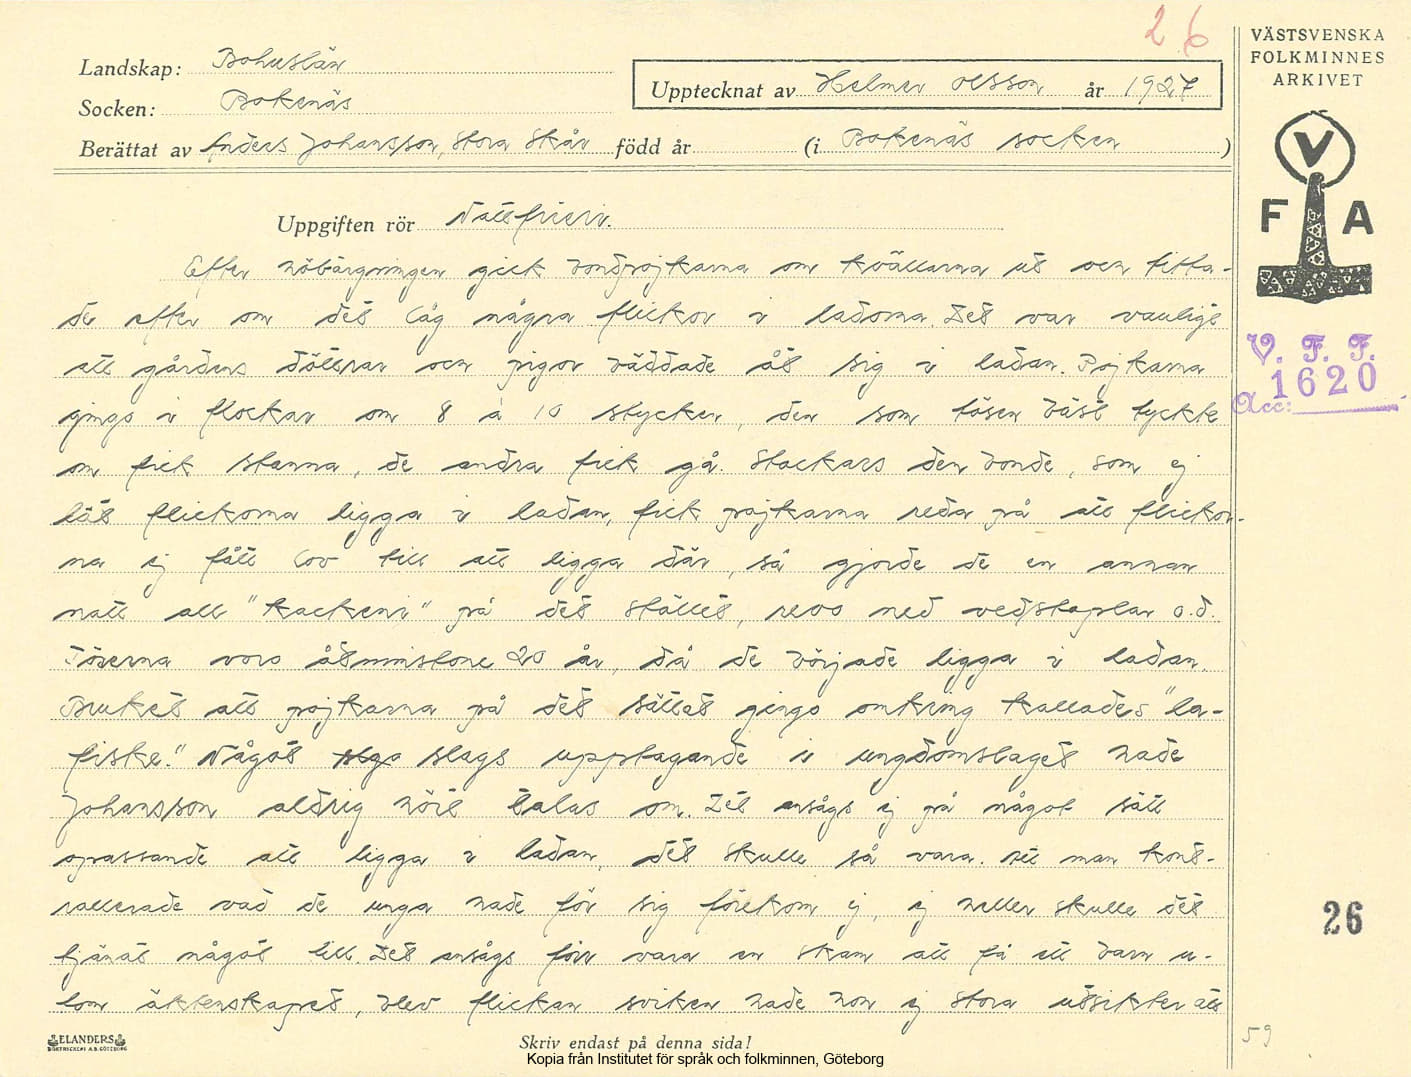 26
VÄSTSVENSKA
FOLKMINNES
ARKIVET
Landskap: Bohuslän
Socken: Bokenäs
Upptecknat av Helmer Olsson år 1927
Berättat av Anders Johansson, Stora Skår född år (i Bokenäs socken )
V
F A
Uppgiften rör Nattfrieri.
Efter höbärgningen gick bondpojkarna om kvällarna ut och titta-
de efter om det låg några flickor i ladorna. Det var vanligt
att gårdens döttrar och pigor bäddade åt sig i ladan. Pojkarna
gingo i flockar om 8 à 10 stycken, den som tösen bäst tyckte
om fick stanna, de andra fick gå. Stackars den bonde, som ej
lät flickorna ligga i ladan, fick pojkarna reda på att flickor-
na ej fått lov till att ligga där, så gjorde de en annan
natt all "tackeni" på det stället, revo ned vedstaplar o.d.
Töserna voro åtminstone 20 år, då de började ligga i ladan.
Bruket att pojkarna på det sättet gingo omkring kallades "la-
fiske." Något slags upptagande i ungdomslaget hade
Johansson aldrig hört talas om. Det ansågs ej på något sätt
opassande att ligga i ladan, det skulle så vara. Att man kont-
rollerade vad de unga hade för sig förekom ej, ej heller skulle det
tjänat något till. Det ansågs förr vara en skam att få ett barn u-
tom äktenskapet, blev flickan sviken hade hon ej stora utsikter att
V. F. F.
1620
Acc:
26
59
ELANDERS
BOKTRYCKERI A.B. GÖTEBORG
Skriv endast på denna sida!
Kopia från Institutet för språk och folkminnen, Göteborg